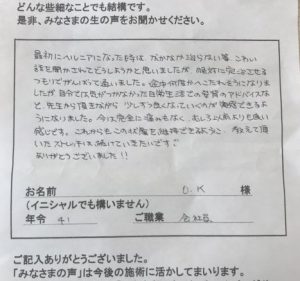 どんな些細なことでも結構です。
是非、みなさまの生の声をお聞かせください。
最初にヘルニアになった時は、なかなか治らない等、こわい
話を聞かされてどうしようかと思いましたが
つもりでがんばって通いました。途中何度かへこたれそうになりまし
たが 自分では気がつかなかった日常生活での姿勢のアドバイスな
ど、先生から頂きながら 少しずつ良くなっていくのが実感できるよ
うになりました。今は完全に痛みもなく、むしろ以前よりも良い
感じです。これからもこの状態を維持できるよう、教えて頂
いたストレッチは続けていきたいです。
ありがとうございました!!
お名前 O.K 様
(イニシャルでも構いません)
年令 41 ご職業 会社員
ご記入ありがとうございました。
「みなさまの声」は今後の施術に活かしてまいります。